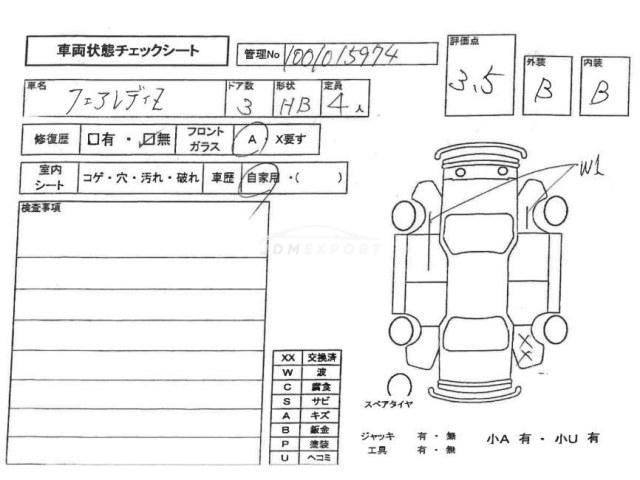 車両状態チェックシート 管理No 1001015974
評価点 3.5 外装 B 内装 B
車名 フェアレディZ ドア数 3 形状 HB 定員 4人
修復歴 □有・☑無 フロントガラス A・X要す
室内シート コゲ・穴・汚れ・破れ 車歴 自家用・( )
検査事項
W1
JDMEXPORT
XX
XX 交換済
W 波
C 腐食
S サビ
A キズ
B 鈑金
P 塗装
U ヘコミ
スペアタイヤ
ジャッキ 有・無
工具 有・無
小A 有・小U 有